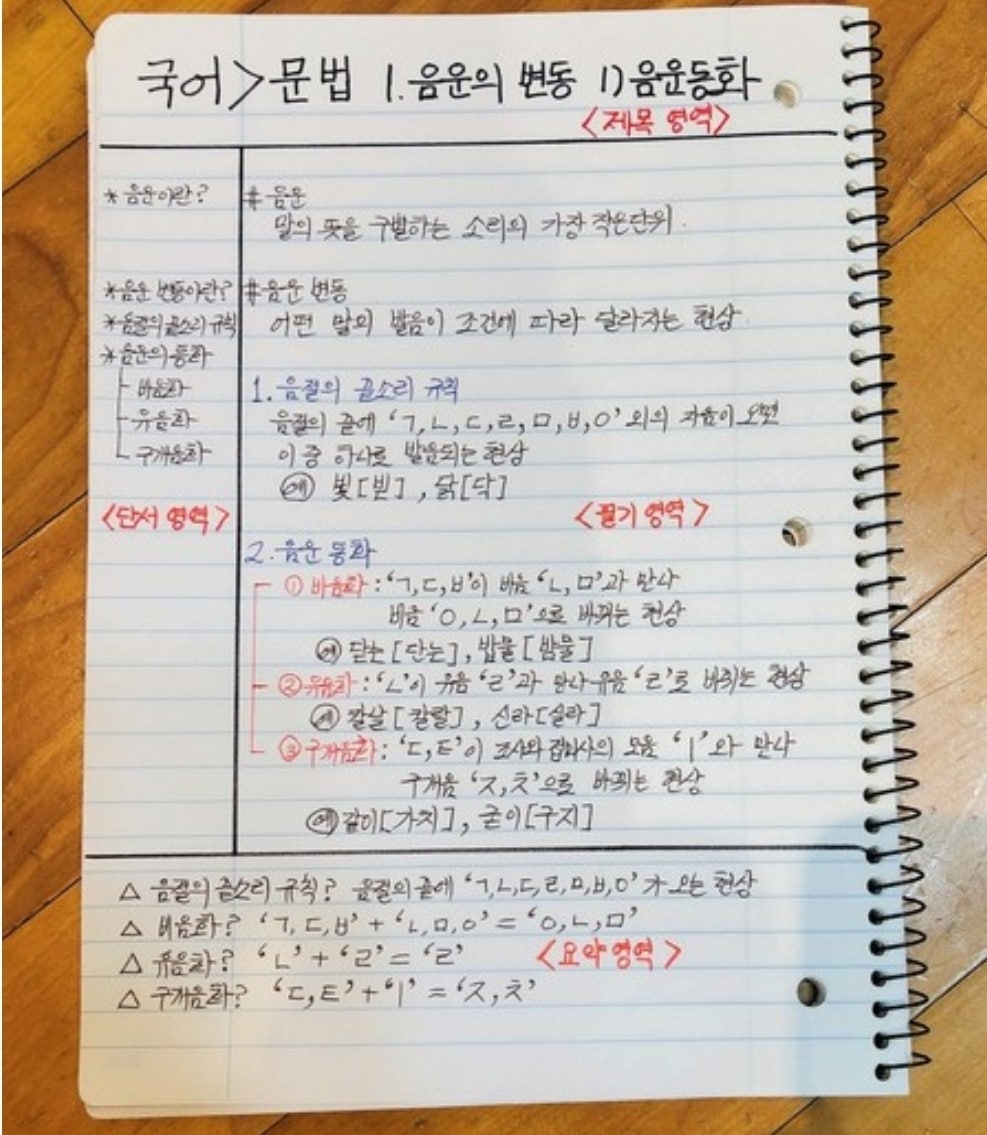 국어>문법 1.음운의 변동 1)음운동화
<제목 영역>
*음운이란?
*음운 변동이란?
*음절의 끝소리 규칙
*음운의 동화
비음화
유음화
구개음화
<단서 영역>
#음운
말의 뜻을 구별하는 소리의 가장 작은단위.
#음운 변동
어떤 말의 발음이 조건에 따라 달라지는 현상.
1.음절의 끝소리 규칙
음절의 끝에 'ㄱ,ㄴ,ㄷ,ㄹ,ㅁ,ㅂ,ㅇ' 외의 자음이 오면
이 중 하나로 발음되는 현상
예 빛[빋], 닭[닥]
<필기 영역>
2.음운 동화
① 비음화:'ㄱ,ㄷ,ㅂ'이 비음 'ㄴ,ㅁ'과 만나
비음 'ㅇ,ㄴ,ㅁ'으로 바뀌는 현상
예 닫는[단는], 밥물[밤물]
② 유음화:'ㄴ'이 유음 'ㄹ'과 만나 유음 'ㄹ'로 바뀌는 현상
예 칼날[칼랄], 신라[실라]
③ 구개음화:'ㄷ,ㅌ'이 조사와 접미사의 모음 'ㅣ'와 만나
구개음 'ㅈ,ㅊ'으로 바뀌는 현상
예 같이[가치], 굳이[구지]
△ 음절의 끝소리 규칙? 음절의 끝에 'ㄱ,ㄴ,ㄷ,ㄹ,ㅁ,ㅂ,ㅇ'가 오는 현상
△ 비음화? 'ㄱ,ㄷ,ㅂ'+'ㄴ,ㅁ,ㅇ'='ㅇ,ㄴ,ㅁ'
△ 유음화? 'ㄴ'+'ㄹ'='ㄹ'
<요약 영역>
△ 구개음화? 'ㄷ,ㅌ'+'ㅣ'='ㅈ,ㅊ'